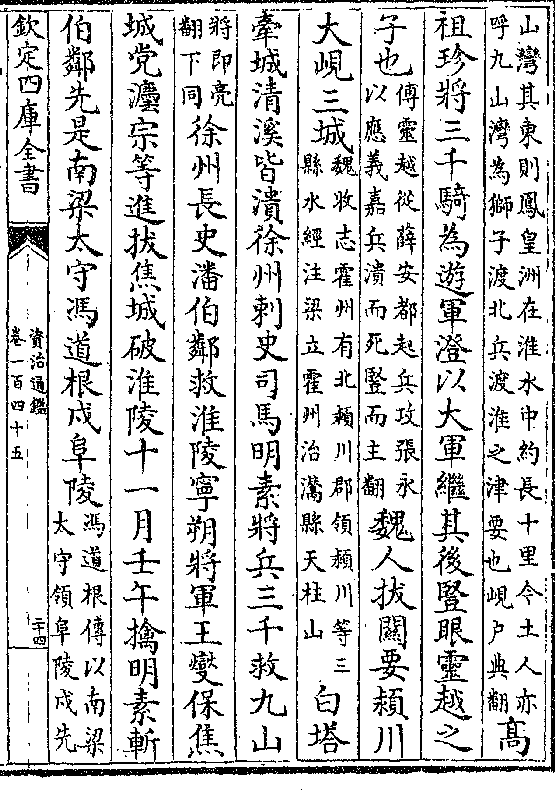 山灣其東則鳳皇洲在淮水中約長十里今土人亦
呼九山灣為獅子渡北兵渡淮之津要也峴户典翻
高
祖珍將三千騎為遊軍澄以大軍繼其後豎眼靈越之
子也
傅靈越從薛安都起兵攻張永
以應義嘉兵潰而死豎而主翻
魏人拔關要頴川
大峴三城
魏收志霍州有北頴川郡領頴川等三
縣水經注梁立霍州治灊縣天柱山
白塔
牽城清溪皆潰徐州刺史司馬明素將兵三千救九山
將即亮
翻下同
徐州長史潘伯鄰救淮陵寧朔將軍王燮保焦
城党灋宗等進拔焦城破淮陵十一月壬午擒明素斬
伯鄰先是南梁太守馮道根戍阜陵
馮道根傳以南梁
太守領阜陵戍先
欽定四庫全書
資治通鑑
卷一百四十五
二十四